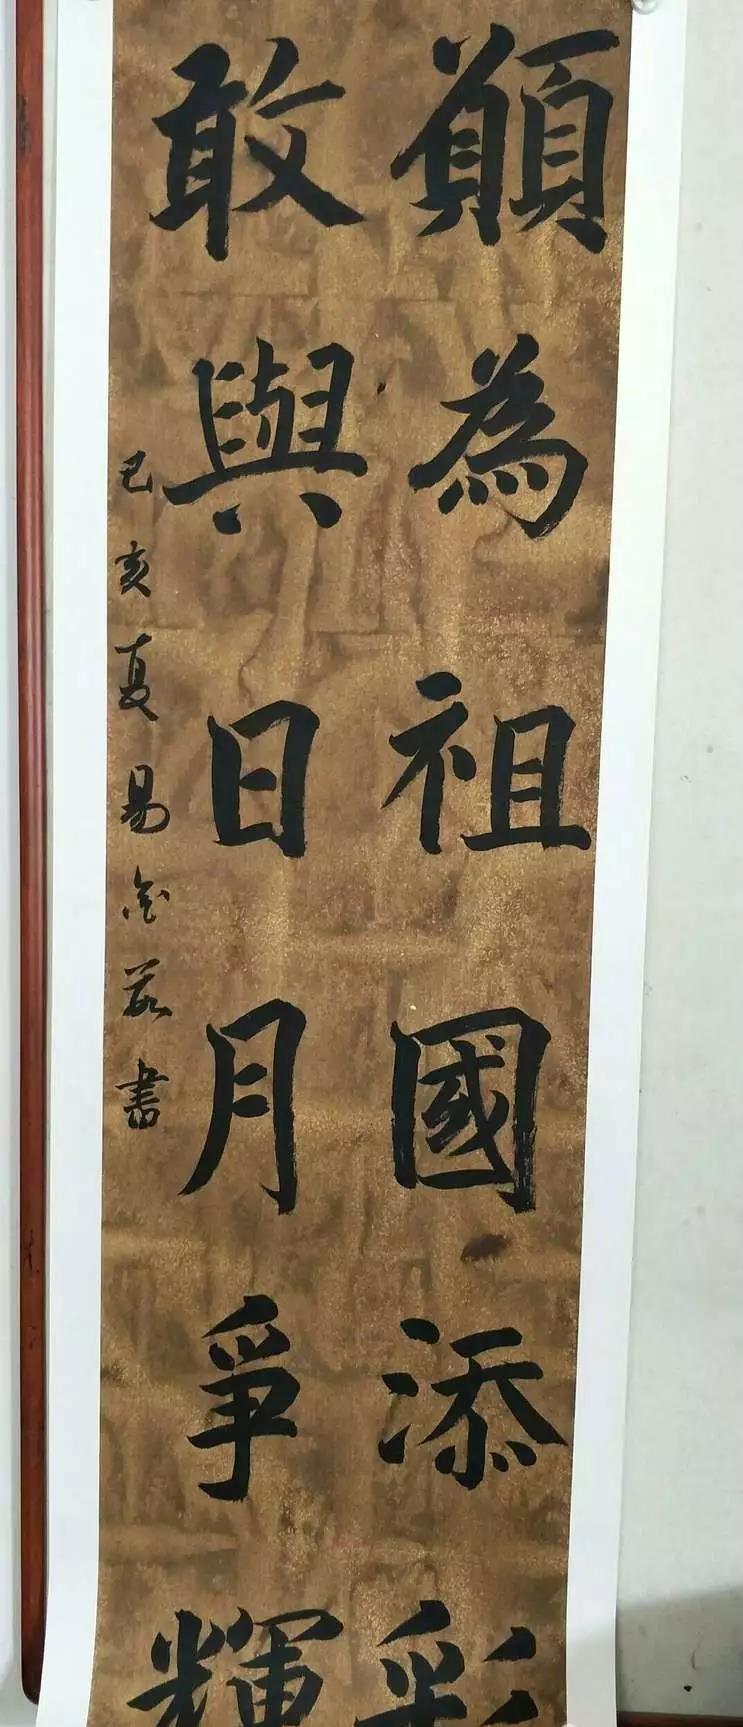 願為祖國添彩
敢與日月爭輝
己亥夏易金書